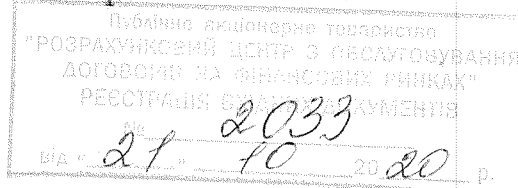 Публічне акціонерне товариство
"РОЗРАХУНКОВИЙ ЦЕНТР З ОБСЛУГОВУВАННЯ
ДОГОВОРІВ НА ФІНАНСОВИХ РИНКАХ"
РЕЄСТРАЦІЯ ВХІДНИХ ДОКУМЕНТІВ
№ 2033
від « 21 » 10 20 20 р.